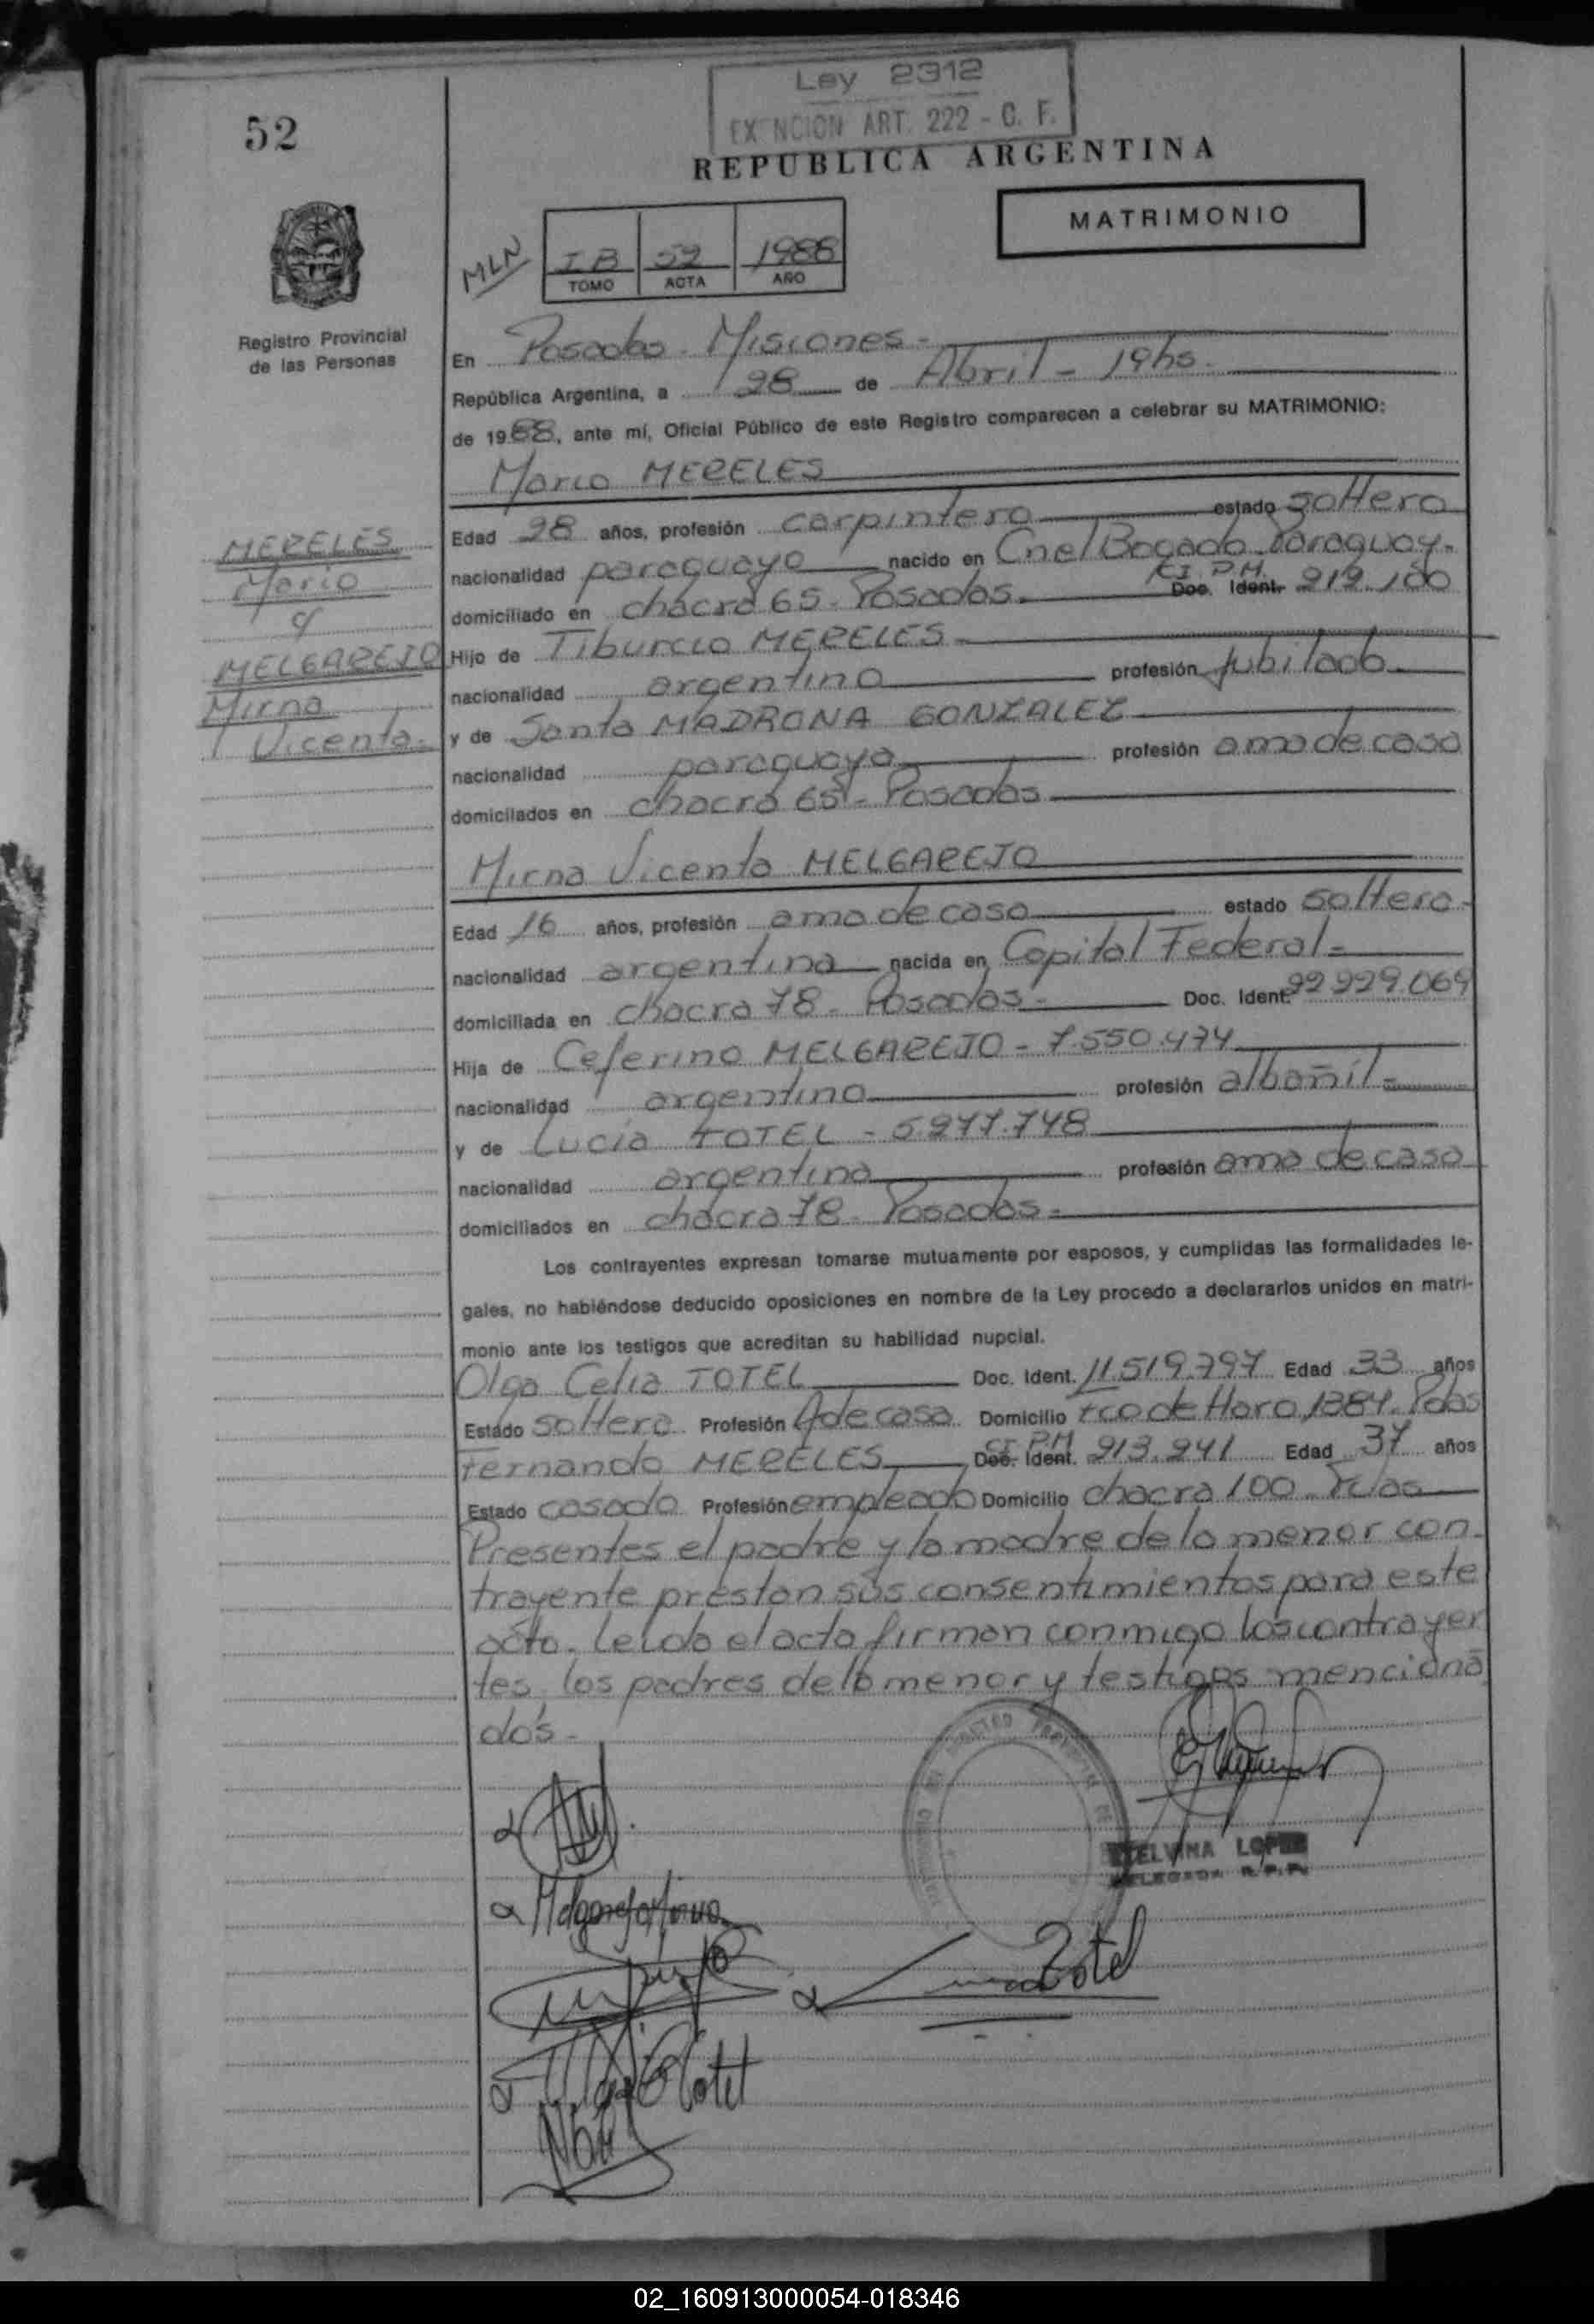 Ley 2312
EXENCION ART. 222 - C. F.
52
REPUBLICA ARGENTINA
MATRIMONIO
MLN
I B 52 1988
TOMO ACTA AÑO
Registro Provincial
de las Personas
En Posadas - Misiones -
República Argentina, a 28 de Abril - 19hs.
de 1988, ante mí, Oficial Público de este Registro comparecen a celebrar su MATRIMONIO:
Mario MERELES
Edad 28 años, profesión carpintero estado soltero
nacionalidad paraguaya nacido en Cnel Bogado. Paraguay-
C.I. P.M.
domiciliado en chacra 65 - Posadas. Doc. Ident. 212.100
Hijo de Tiburcio MERELES
nacionalidad argentina profesión jubilado
y de Santa MADRONA GONZALEZ
nacionalidad paraguaya profesión ama de casa
domicilados en chacra 65 - Posadas
MERELES
Mario
c/
MELGAREJO
Mirna
Vicenta.
Mirna Vicenta MELGAREJO
Edad 16 años, profesión ama de casa estado soltera-
nacionalidad argentina nacida en Capital Federal-
domiciliada en chacra 78 - Posadas - Doc. Ident. 22.929.069
Hija de Ceferino MELGAREJO - 7.550.474
nacionalidad argentina profesión albañil-
y de Lucía TOTEL - 5.277.748
nacionalidad argentina profesión ama de casa
domiciliados en chacra 78 - Posadas -
Los contrayentes expresan tomarse mutuamente por esposos, y cumplidas las formalidades le-
gales, no habiéndose deducido oposiciones en nombre de la Ley procedo a declararlos unidos en matri-
monio ante los testigos que acreditan su habilidad nupcial.
Olga Celia TOTEL Doc. Ident. 11.519.797 Edad 33 años
Estado soltera Profesión A de casa Domicilio Fco de Haro 1384. Pdas
C.I. P.M
Fernando MERELES Doc. Ident. 213.241 Edad 37 años
Estado casado Profesión empleado Domicilio chacra 100 - Pdas
Presentes el padre y la madre de la menor con-
trayente prestan sus consentimientos para este
acto. Leída el acta firman conmigo los contrayen
tes, los padres de la menor y testigos menciona
dos -
ETELVINA LOPEZ
DELEGADA R.P.P.
Melgarejo Mirna
Lucia Totel
Totel
02_160913000054-018346